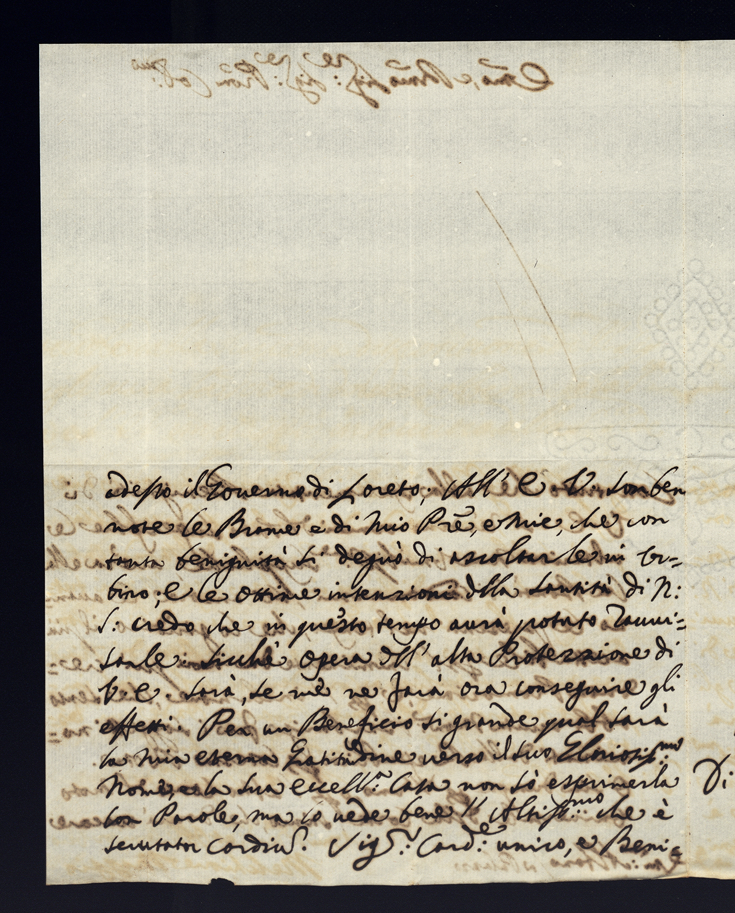 adesso il Governo di Loreto; All' E. V. son ben
note le Brame e di Mio Prē, e Mie, che con
tanta benignità si degnò di ascoltarle in Ur=
bino; e le ottime intenzioni dlla Santità di N:
S: credo che in questo tempo aurà potuto rauui=
sarle: sicchè opera dll' alta Protezzione di
V E sarà, se mè ne farà ora conseguire gli
effetti. Per un Beneficio si grande qual sarà
la mia eterna Gratitudine verso il suo Gloriosiss:mo
Nome, e la sua eccell:ma Casa non sò esprimerla
con Parole, ma io vede bene l' Altiss:mo che è
scrutator cordiu. Sig:r Card:e unico, e Beni=